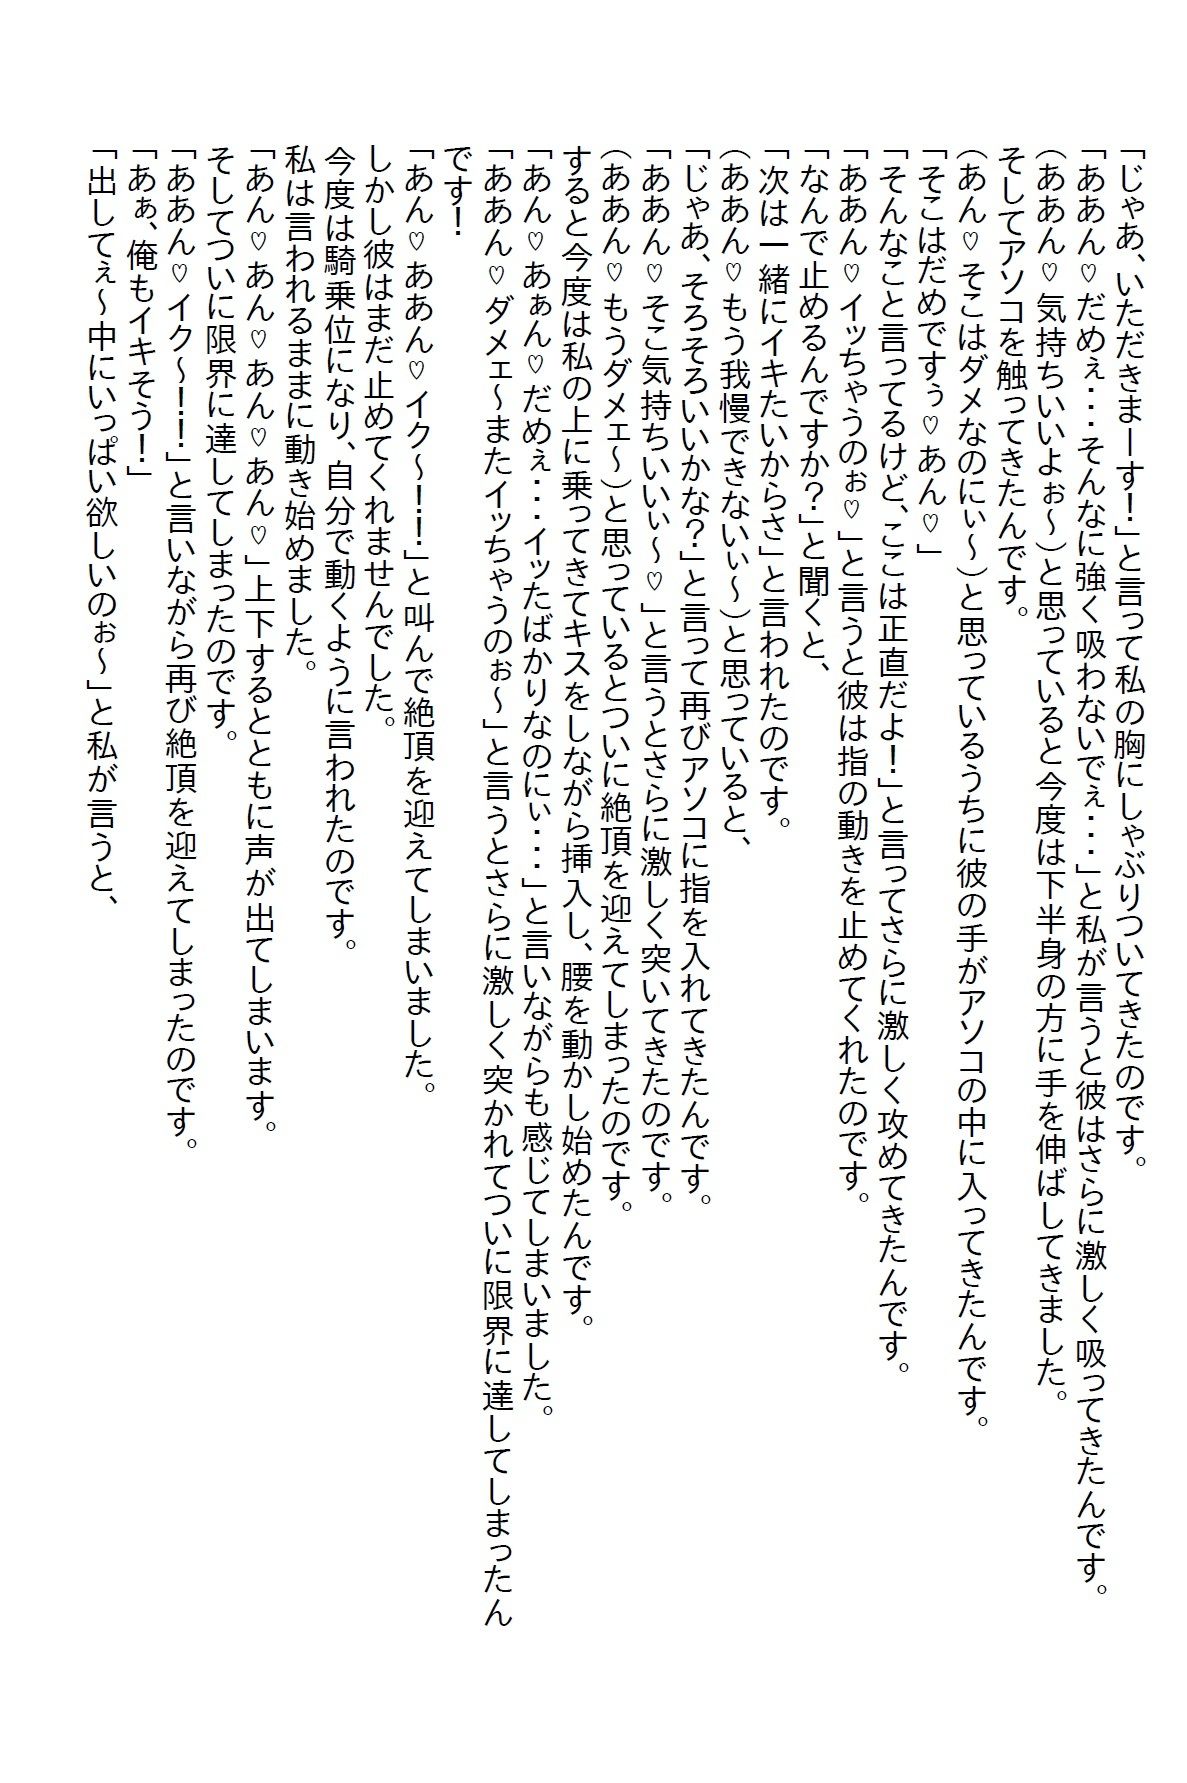 「じゃあ、いただきまーす！」と言って私の胸にしゃぶりついてきたのです。
「ああん♡だめぇ・・・そんなに強く吸わないでぇ・・・」と私が言うと彼はさらに激しく吸ってきたんです。
（ああん♡気持ちいいよぉ～）と思っていると今度は下半身の方に手を伸ばしてきました。
そしてアソコを触ってきたんです。
（あん♡そこはダメなのにぃ～）と思っているうちに彼の手がアソコの中に入ってきたんです。
「そこはだめですぅ♡あん♡」
「そんなこと言ってるけど、ここは正直だよ！」と言ってさらに激しく攻めてきたんです。
「ああん♡イッちゃうのぉ♡」と言うと彼は指の動きを止めてくれたのです。
「なんで止めるんですか？」と聞くと、
「次は一緒にイキたいからさ」と言われたのです。
（ああん♡もう我慢できないぃ～）と思っていると、
「じゃあ、そろそろいいかな？」と言って再びアソコに指を入れてきたんです。
「ああん♡そこ気持ちいいぃ～♡」と言うとさらに激しく突いてきたのです。
（ああん♡もうダメェ～）と思っているとついに絶頂を迎えてしまったのです。
すると今度は私の上に乗ってきてキスをしながら挿入し、腰を動かし始めたんです。
「あん♡あぁん♡だめぇ・・・イッたばかりなのにぃ・・・」と言いながらも感じてしまいました。
「ああん♡ダメェ～またイッちゃうのぉ～」と言うとさらに激しく突かれてついに限界に達してしまったん
です！
「あん♡ああん♡イク～！！！」と叫んで絶頂を迎えてしまいました。
しかし彼はまだ止めてくれませんでした。
今度は騎乗位になり、自分で動くように言われたのです。
私は言われるままに動き始めました。
「あん♡あん♡あん♡あん♡」上下するとともに声が出てしまいます。
そしてついに限界に達してしまったのです。
「ああん♡イク～！！！」と言いながら再び絶頂を迎えてしまったのです。
「あぁ、俺もイキそう！」
「出してぇ～中にいっぱい欲しいのぉ～」と私が言うと、